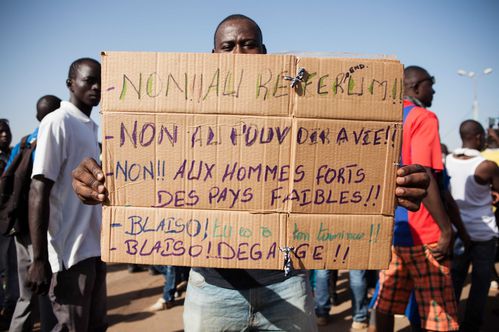 - NON!! AU REFERENDUM!!
- NON AU POUVOIR A VIE!!
NON!! AUX HOMMES FORTS
DES PAYS FAIBLES!!
- BLAISO! tu es à ton terminus!!
- BLAISO! DEGAGE!!